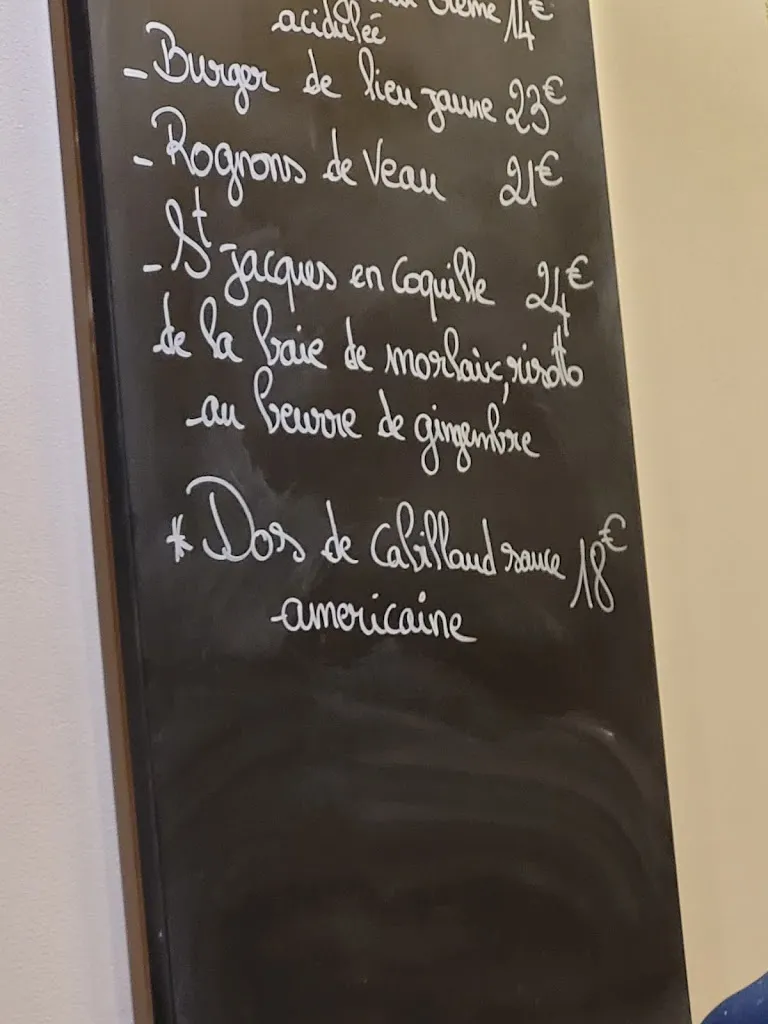 crème 14€
acidulée
- Burger de lieu jaune 23€
- Rognons de Veau 21€
- St jacques en Coquille 24€
de la baie de morlaix, risotto
au beurre de gingembre
* Dos de Cabillaud sauce 18€
americaine